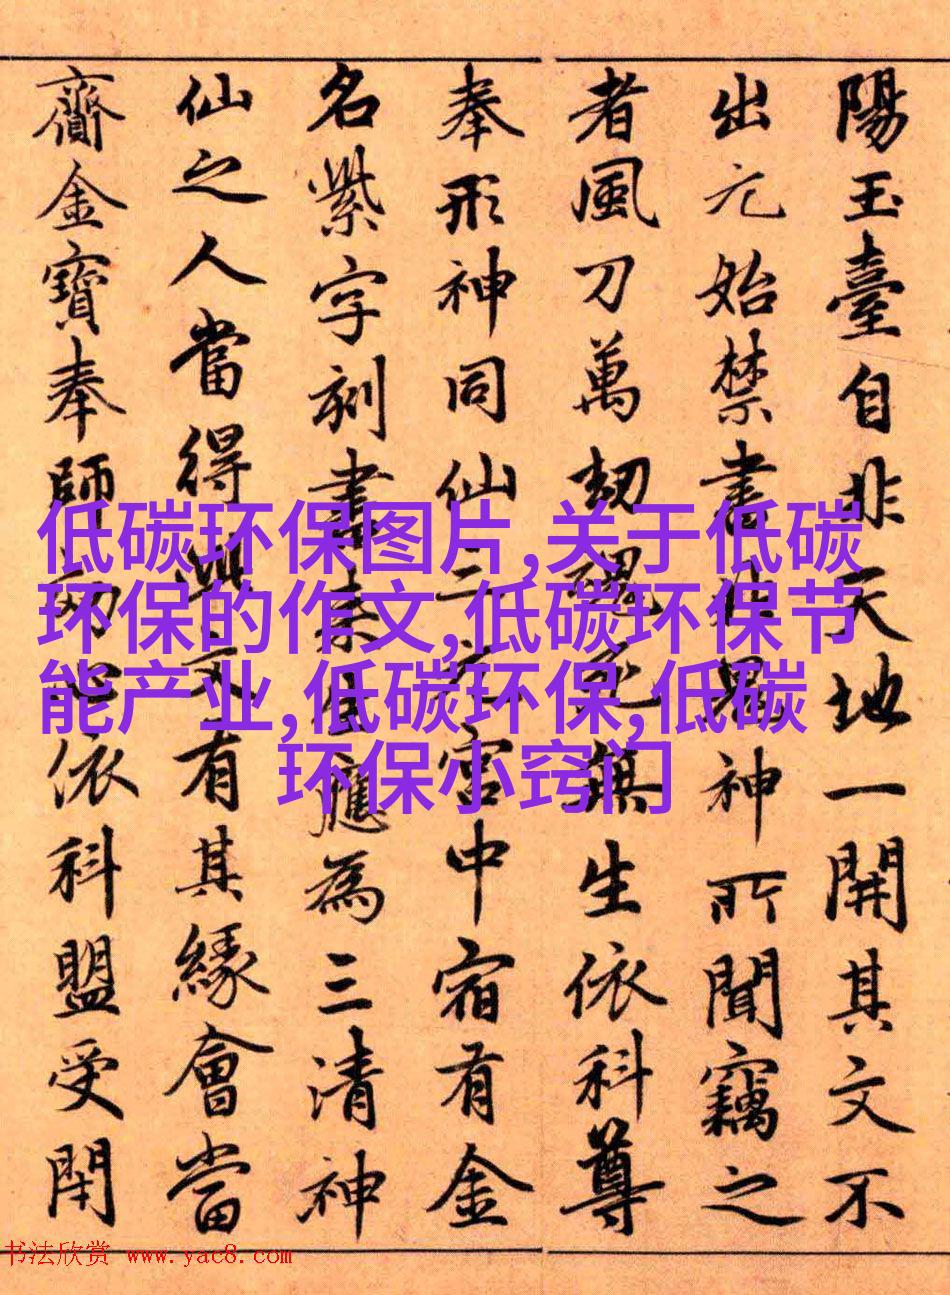 陽玉臺自非天地一開其文不
出元始禁書非鬼神所聞竊之
者風刀萬劫無生依科尊
奉形神同仙三元宮中宿有金
名紫字刻書應為三清神
仙之人當得此文有其緣會當
齎金寶奉師心依科盟受閇
低碳环保图片,关于低碳
环保的作文,低碳环保节
能产业,低碳环保,低碳
环保小窍门
书法欣赏 www.yac8.com